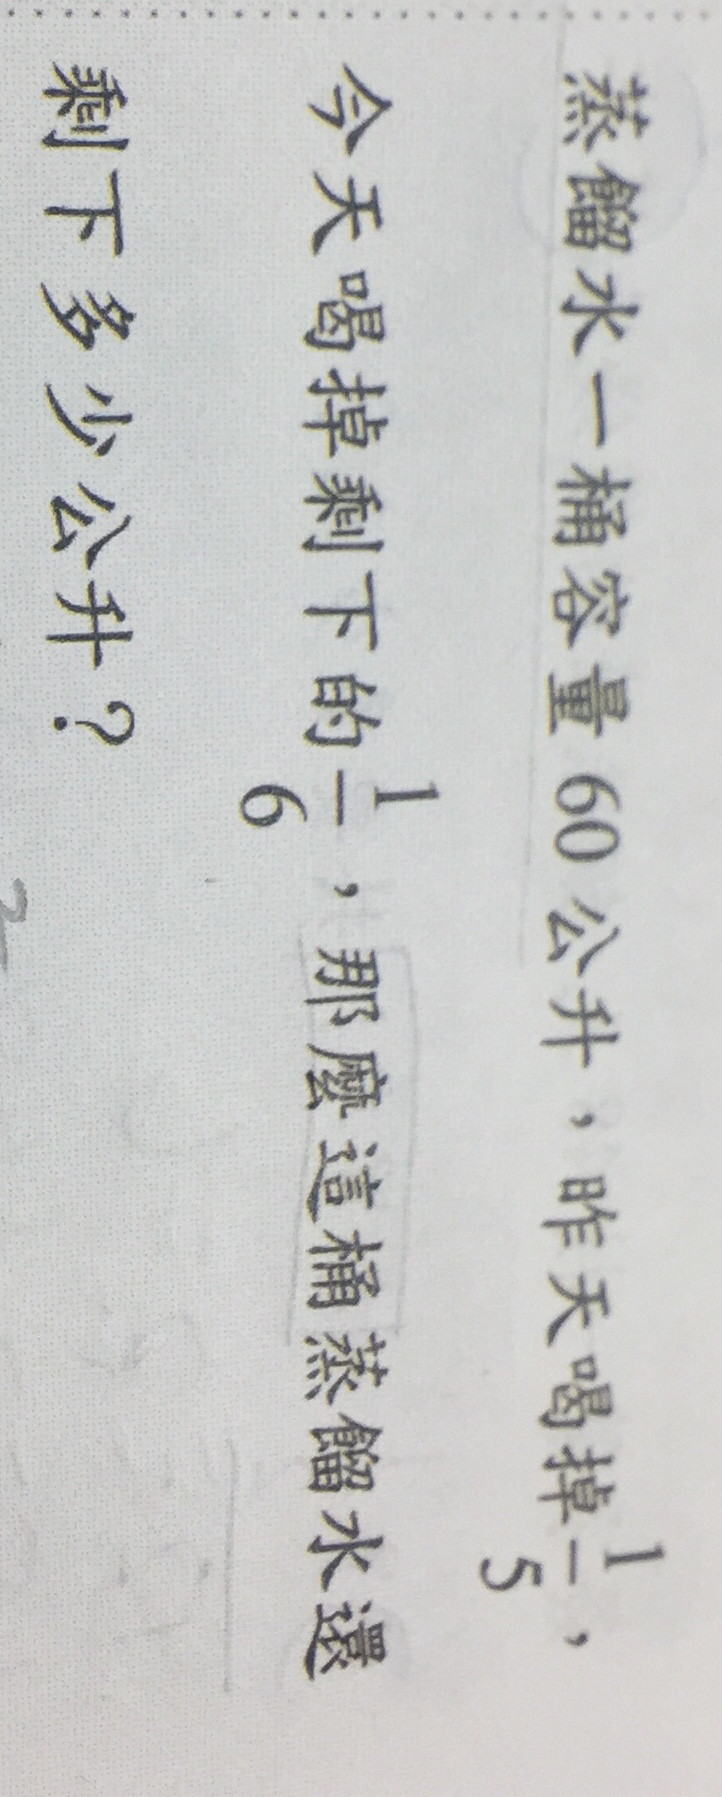 蒸餾水一桶容量 60 公升，昨天喝掉 1/5，
今天喝掉剩下的 1/6，那麼這桶蒸餾水還
剩下多少公升？